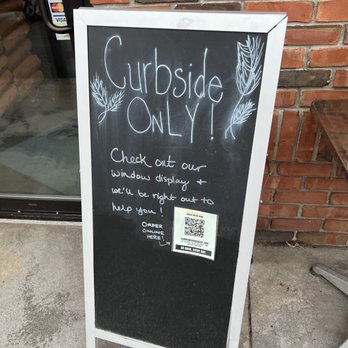 Curbside
ONLY!
Check out our
window display +
we'll be right out to
help you!
ORDER
ONLINE
HERE!